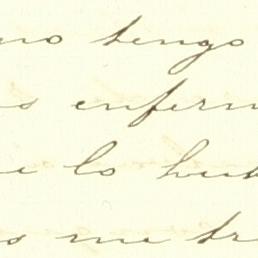 no tengo
s enferm
e lo hub
s me tr